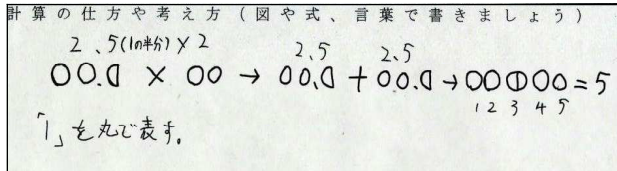 計算の仕方や考え方(図や式、言葉で書きましょう)
2、5(1の半分)×2
2、5 2、5
× → + → = 5
1 2 3 4 5
「1」を丸で表す。